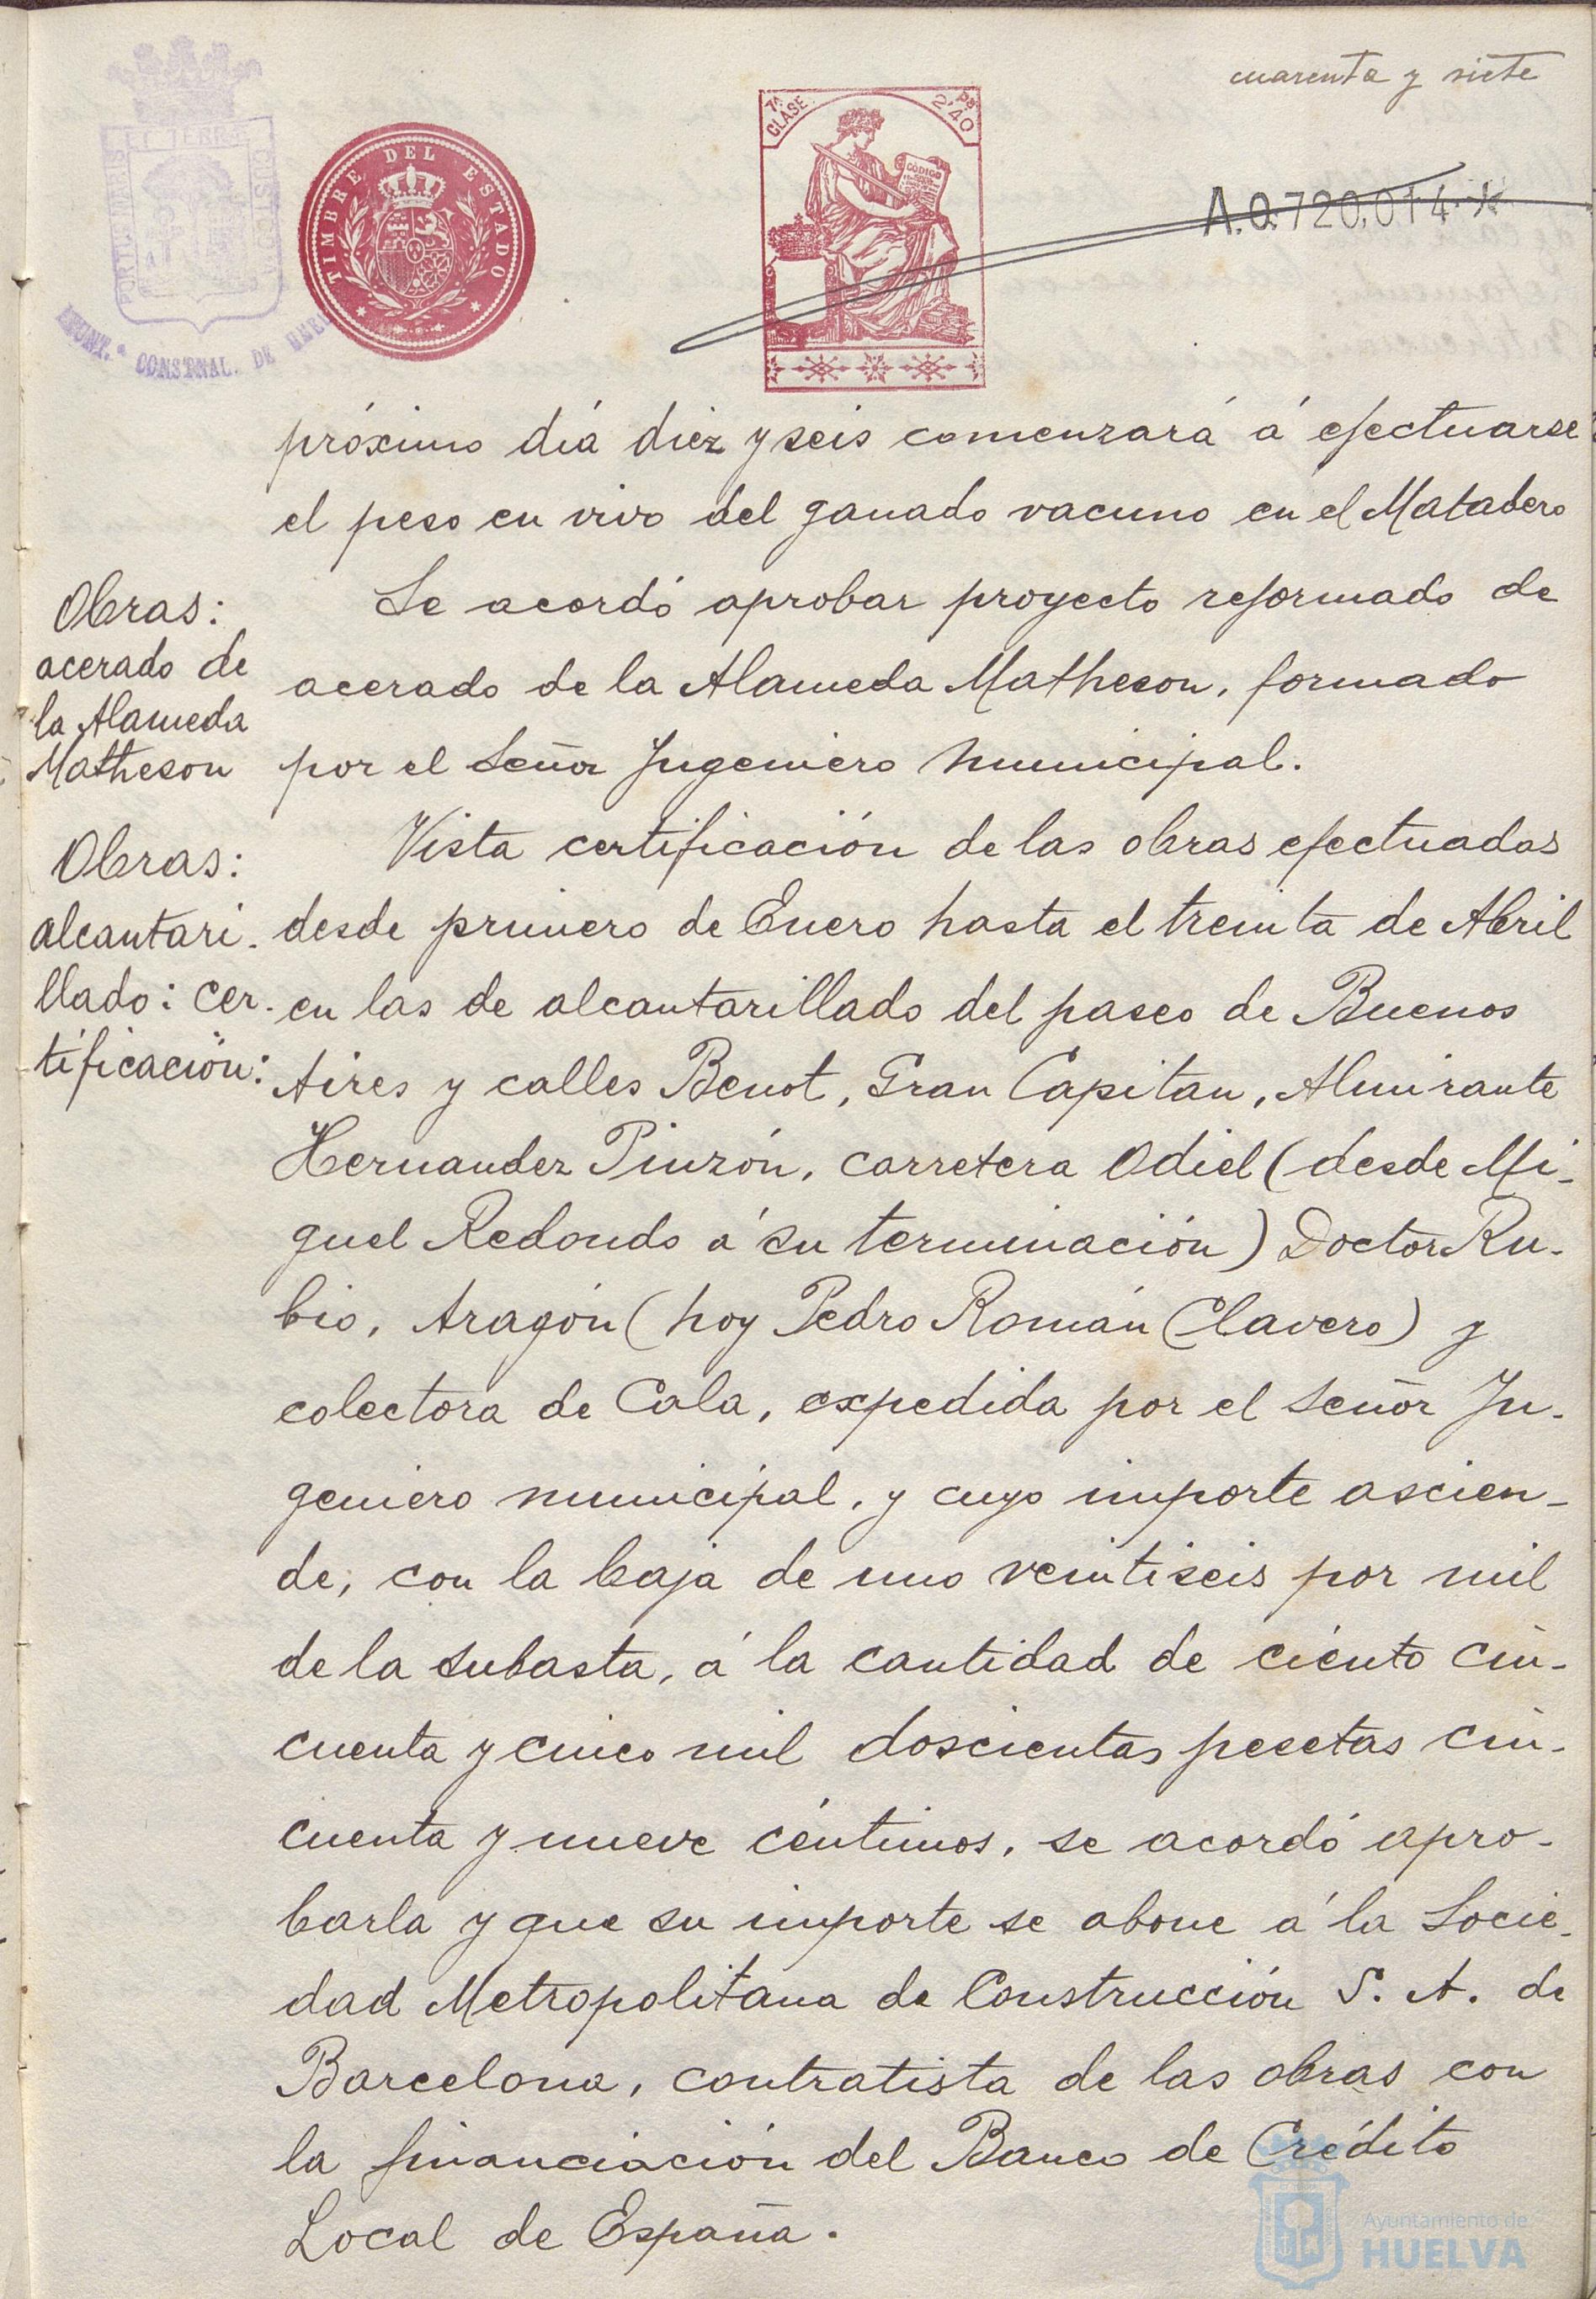 cuarenta y siete
7ª CLASE
2'40 Ps
CÓDIGO
TIMBRE DEL ESTADO
PORTUS MARIS ET TERRÆ CUSTODIA
AYUNT.º CONST.NAL. DE HUELVA
A.0.720,014
próximo día diez y seis comenzará á efectuarse
el peso en vivo del ganado vacuno en el Matadero
Obras:
acerado de
la Alameda
Matheson
Se acordó aprobar proyecto reformado de
acerado de la Alameda Matheson, formado
por el Señor Ingeniero Municipal.
Obras:
alcantari-
llado: cer-
tificación:
Vista certificación de las obras efectuadas
desde primero de Enero hasta el treinta de Abril
en las de alcantarillado del paseo de Buenos
Aires y calles Benot, Gran Capitan, Almirante
Hernandez Pinzón, carretera Odiel (desde Mi-
guel Redondo á su terminación) Doctor Ru-
bio, Aragón (hoy Pedro Román Clavero) y
colectora de Cala, expedida por el señor In-
geniero municipal, y cuyo importe ascien-
de, con la baja de uno veintiseis por mil
de la subasta, á la cantidad de ciento cin-
cuenta y cinco mil doscientas pesetas cin-
cuenta y nueve céntimos, se acordó apro-
barla y que su importe se abone á la Socie-
dad Metropolitana de Construcción S. A. de
Barcelona, contratista de las obras con
la financiación del Banco de Crédito
Local de España.
Ayuntamiento de
HUELVA